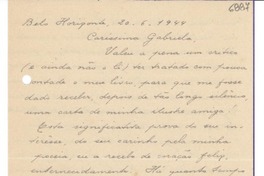 6887
Belo Horizonte, 20.6.1944
Caríssima Gabriela,
Valeu a pena um crítico
(e ainda não o li) ter tratado com pouca
bondade o meu livro, para que me fosse
dado receber, depois de tão longo silêncio,
uma carta de minha ilustre amiga!
Esta significativa prova do seu in-
terêsse, do seu carinho pela minha
poesia, eu a recebo de coração feliz,
enternecidamente. Há quanto tempo